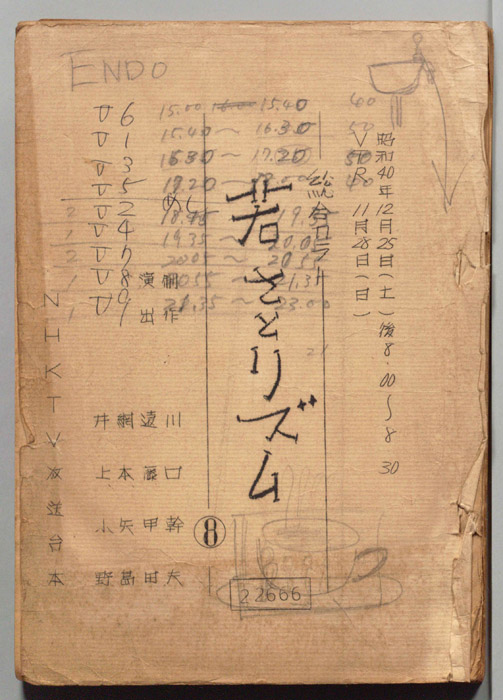 ENDO
昭和40年12月25日(土)後8.00〜8.30
VTR 11月28日(日)
総合カラー
若さとリズム
⑧
制作
川口幹夫
演出
遠藤甲田
網本矢島
井上小野
NHKTV放送台本
22666
6 15.00 15.40 40
1 15.40〜16.30 50
3 16.30〜17.20 50
5 17.20
2 めし
4 19.35〜
7 20.05
8
9 21.35〜23.00